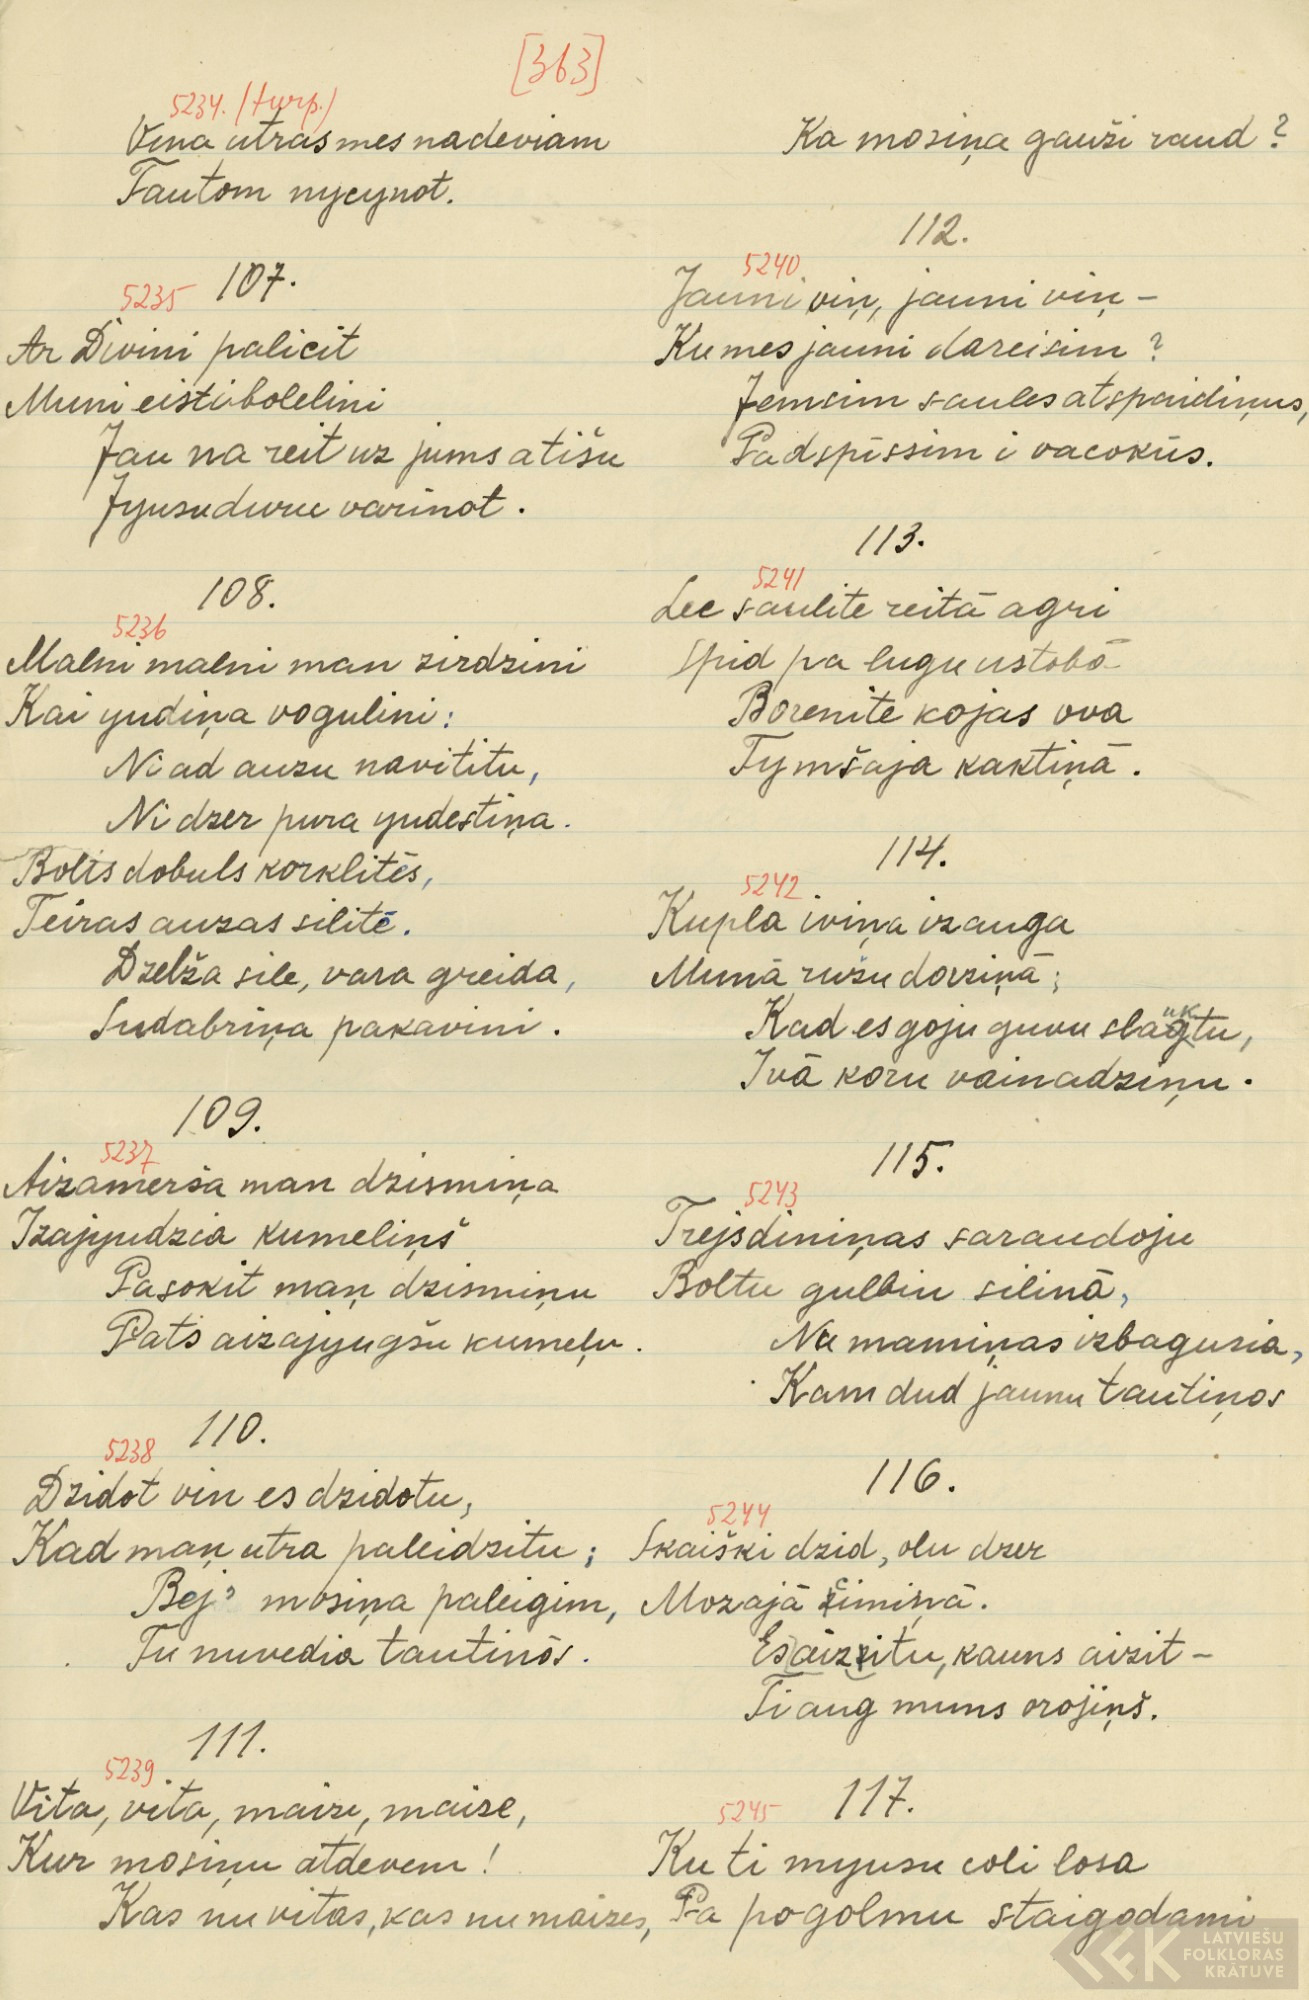 [363]
5234. (turp.)
Vina utras mes nadeviam
Tautom nycynot.
107.
5235
Ar Divini palicit
Muni eisti bolelini
Jau na reit uz jums atišu
Jyusu duru varinot.
108.
5236
Malni malni man zirdzini
Kai yudiņa vogulini:
Ni ad auzu navititu,
Ni dzer pura yudestiņa.
Bolts dobuls korklitēs,
Teiras auzas silitē.
Dzelža sile, vara greida,
Sudabriņa pakavini.
109.
5237
Aizamerša man dzismiņa
Izajyudzia kumeliņš
Pasokit maņ dzismiņu
Pats aizajyugšu kumeļu.
110.
5238
Dzidot vin es dzidotu,
Kad maņ utra paleidzitu;
Bej' mosiņa paleigim,
Tu nuvedia tautinōs.
111.
5239
Vita, vita, maize, maize,
Kur mosiņu atdevem!
Kas nu vitas, kas nu maizes,
Ka mosiņa gauži raud?
112.
5240
Jauni viņ, jauni viņ –
Ku mes jauni dareisim?
Jemsim saules atspaidiņus,
Padspīssim i vacokūs.
113.
5241
Lec saulite reitā agri
Spid pa lugu ustobā
Borenite kojas ova
Tymšaja kaktiņā.
114.
5242
Kupla iviņa izauga
Munā ružu dorziņā;
Kad es goju guvu slauktu,
Ivā koru vainadziņu.
115.
5243
Trejs diniņas saraudoju
Boltu gulbiu silinā,
Nu mamiņas izbagusia,
Kam dud jaunu tautiņos
116.
5244
Skaiški dzid, olu dzer
Mozajā cimiņā.
Es aizitu, kauns aizit –
Ti aug muns orojiņš.
117.
5245
Ku ti myusu coli losa
Pa pogolmu staigodami
LATVIEŠU
FOLKLORAS
KRĀTUVE